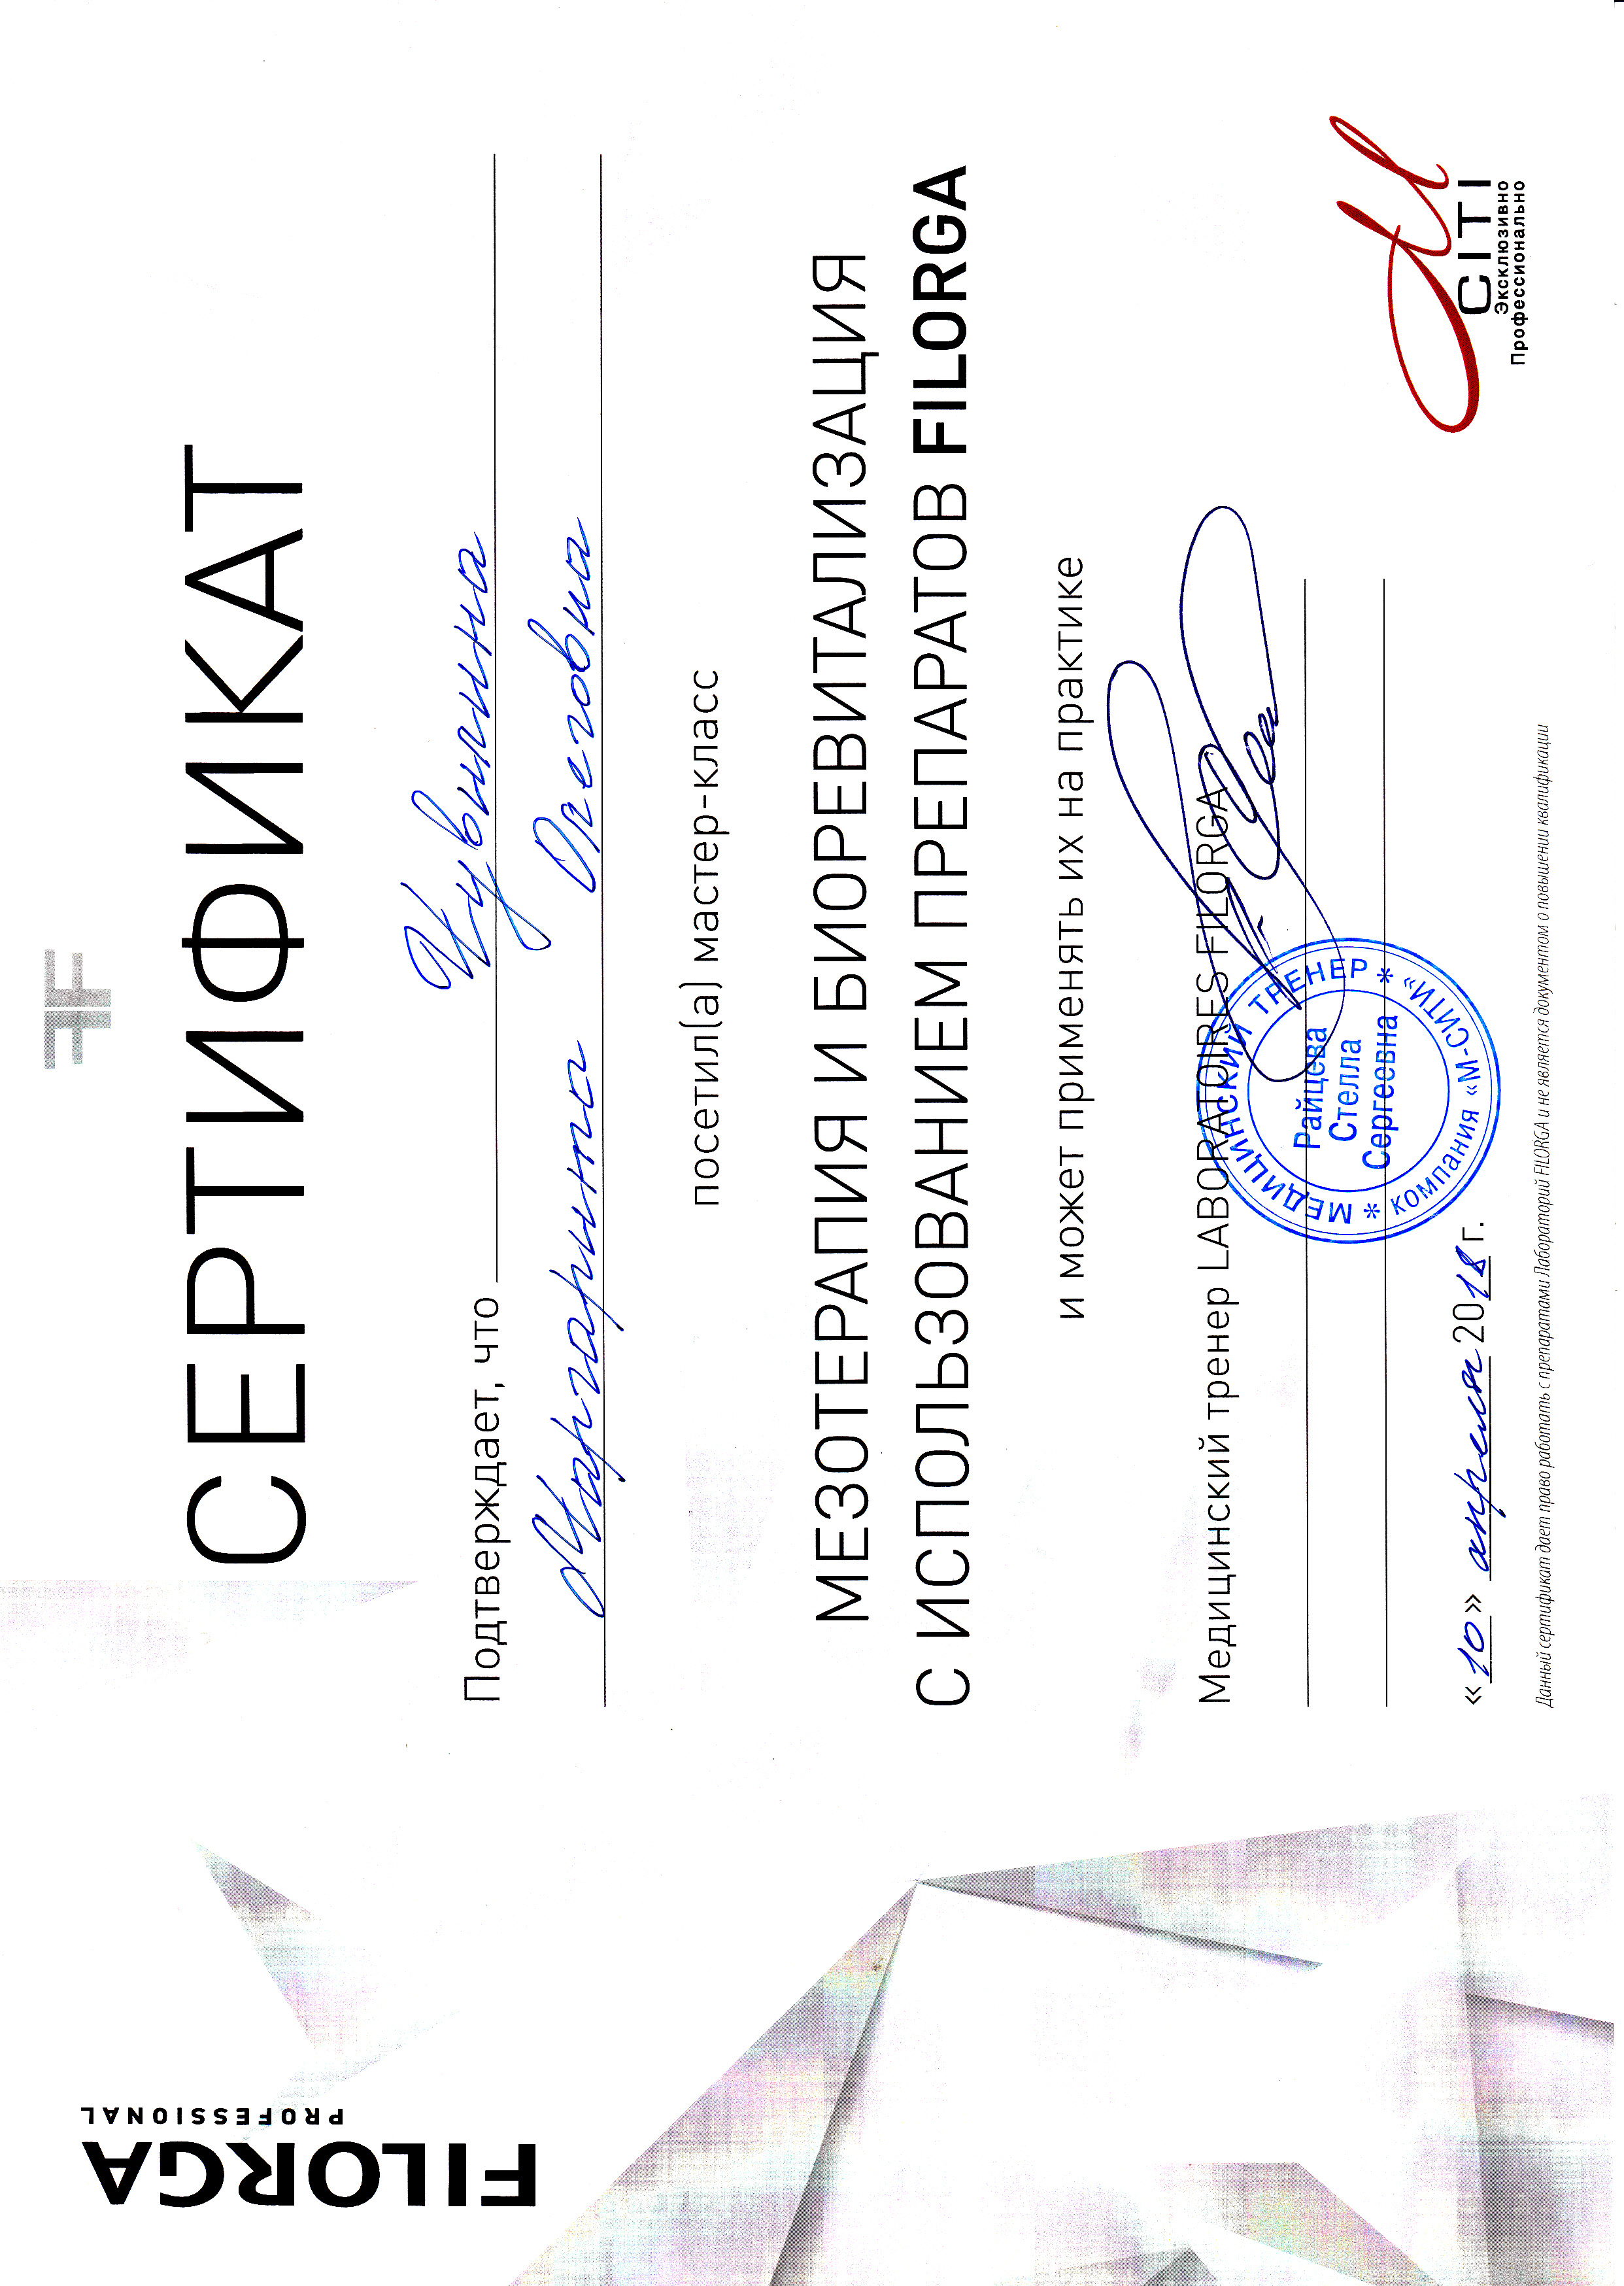 FILORGA
PROFESSIONAL
СЕРТИФИКАТ
Подтверждает, что Чувилина
Маргарита Олеговна
посетил(а) мастер-класс
МЕЗОТЕРАПИЯ И БИОРЕВИТАЛИЗАЦИЯ
С ИСПОЛЬЗОВАНИЕМ ПРЕПАРАТОВ FILORGA
и может применять их на практике
Медицинский тренер LABORATOIRES FILORGA
МЕДИЦИНСКИЙ ТРЕНЕР
Райцева
Стелла
Сергеевна
* компания «М-СИТИ» *
«10» апреля 2018 г.
M
CITI
Эксклюзивно
Профессионально
Данный сертификат дает право работать с препаратами Лабораторий FILORGA и не является документом о повышении квалификации